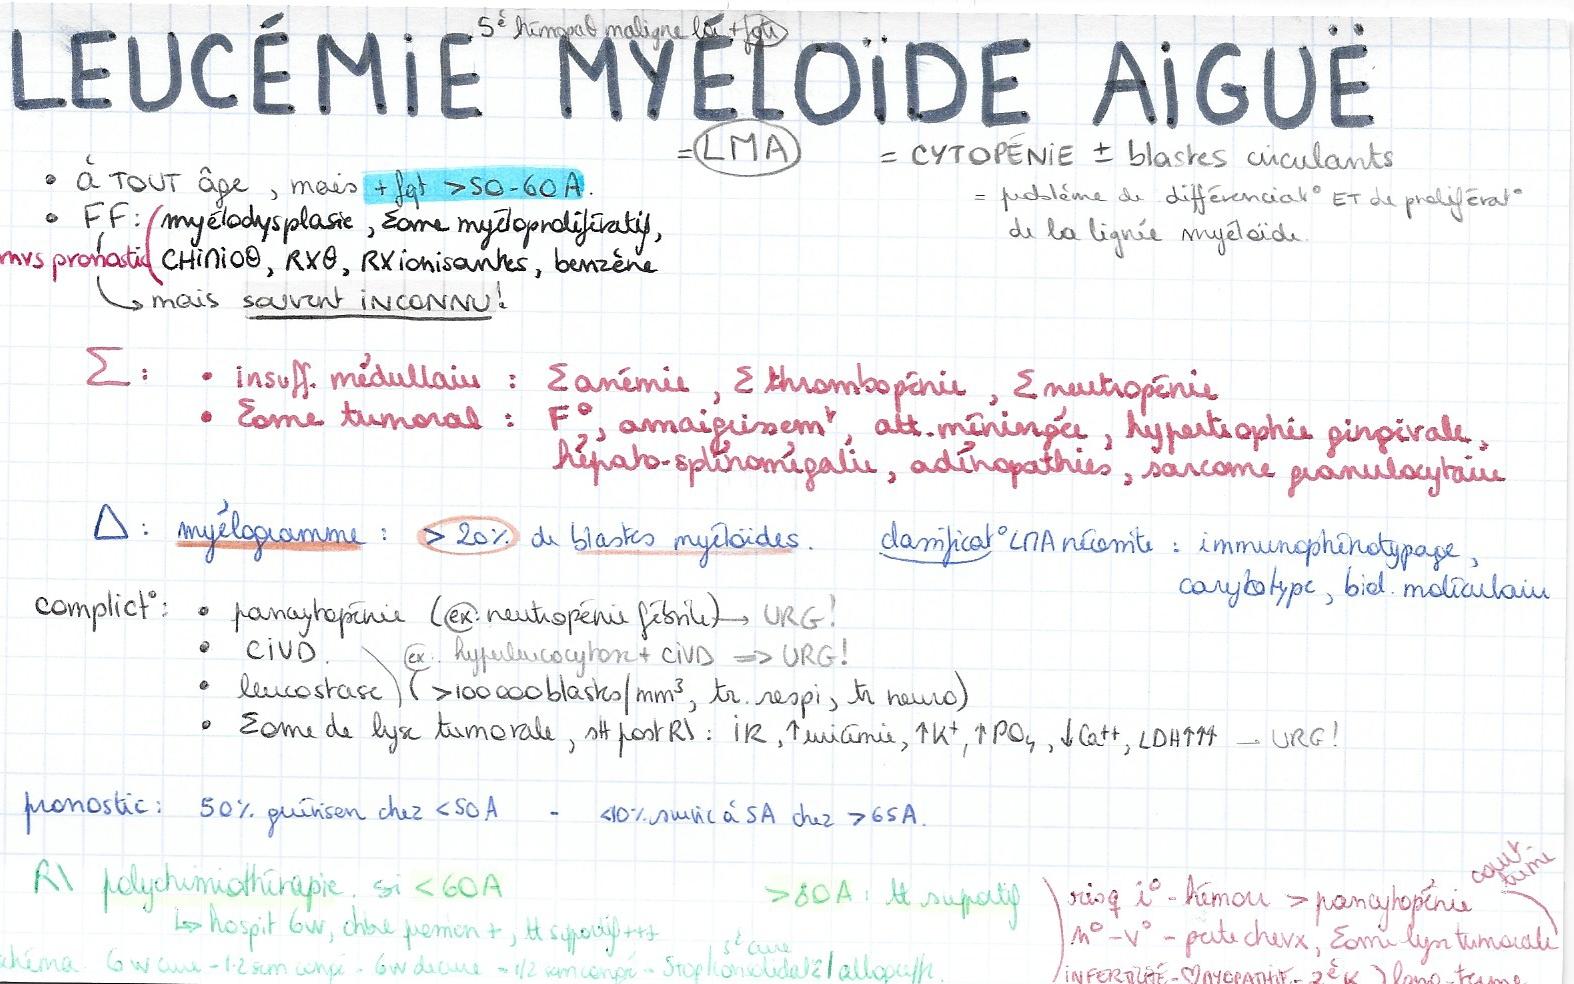 5è hémopat maligne la + fqte
LEUCÉMiE MYÉLOÏDE AiGUË
= LMA = CYTOPÉNiE ± blastes circulants
= problème de différenciat° ET de proliférat°
de la lignée myéloïde.
• à TOUT âge, mais + fqt > 50-60A.
• FF: myélodysplasie, Σome myéloprolifératif,
mvs pronostic CHiMIOθ, RXθ, RX ionisantes, benzène
↳ mais souvent iNCONNU!
Σ: • insuff. médullaire : Σ anémie, Σ thrombopénie, Σ neutropénie
• Σome tumoral : F°, amaigrissemt, att. méningée, hypertrophie gingivale,
hépato-splénomégalie, adénopathies, sarcome granulocytaire
Δ: myélogramme : > 20% de blastes myéloïdes. classificat° LMA nécessite : immunophénotypage,
caryotype, biol. moléculaire
complict°: • pancytopénie (ex: neutropénie fébrile) → URG!
• CiVD. ex. hyperleucocytose + CiVD => URG!
• leucostase (>100 000 blastes/mm³, tr. respi, tr neuro)
• Σome de lyse tumorale, stt post R\ : iR, ↑uricémie, ↑K+, ↑PO4, ↓Ca++, LDH↑↑↑ → URG!
pronostic: 50% guérison chez <50A - <10% survie à 5A chez >65A.
R\ polychimiothérapie. si <60A >80A: tt supportif
↳ hospit 6w, chbre pression +, tt supportif +++
schéma. 6w cure - 1-2 sem congé - 6w de cure - 1/2 sem congé - 3è cure
court terme
risq i° - hémorr > pancytopénie
N° - V° - perte chevx, Σome lyse tumorale
INFERTILITÉ - ♡MYOPATHIE - 2è K ) long-terme